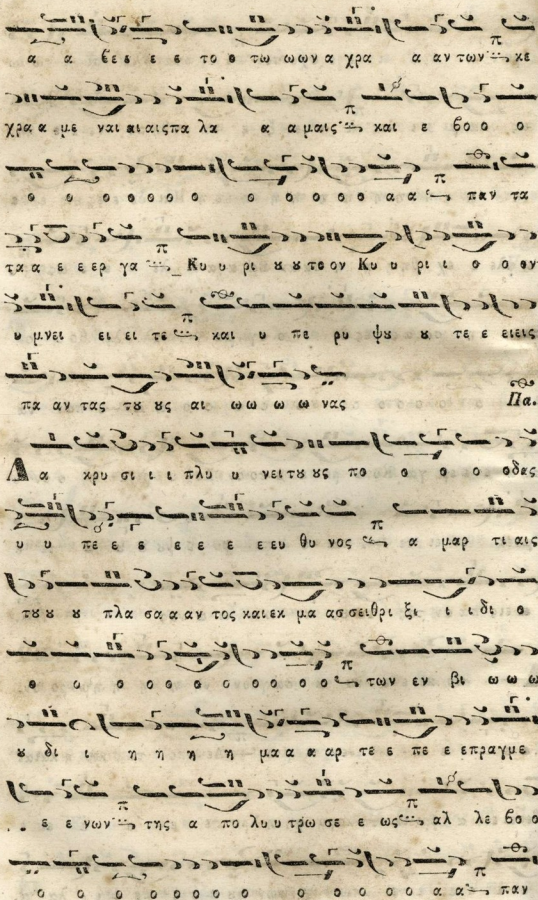 α α θε ε ε ε το ο τω ωων α χρα α αν των π κε
χρα α με ναι αι αις πα λα α α μαις π και ε βο ο ο
ο ο ο ο ο ο ο ο ο ο ο ο α α π παν τα
τα α ε ε ερ γα π Κυ υ ρι ȣ ȣ τοον Κυ υ ρι ι ο ο ον
υ μνει ει ει τε π και υ πε ρυ ψȣ ȣ τε ε ειεις
πα αν τας τȣ ȣς αι ω ω ω ω νας Πα.
Δα α κρυ σι ι ι πλυ υ νει τȣ ȣς πο ο ο ο ο οδας
υ υ πε ε ε ε ε ε ε ευ θυ νος π α μαρ τι αις
τȣ ȣ ȣ πλα σα α α αν τος και εκ μα ασσει θρι ξι ι ι δι ο
ο ο ο ο ο ο ο ο ο ο ο π των εν βι ω ω ω
ȣ δι ι η η η η μα α α αρ τε ε πε ε επραγμε
ε ε νων π της α πο λυ υ τρω σε ε ως π αλ λε βο ο
ο ο ο ο ο ο ο ο ο ο ο ο ο α α π παν